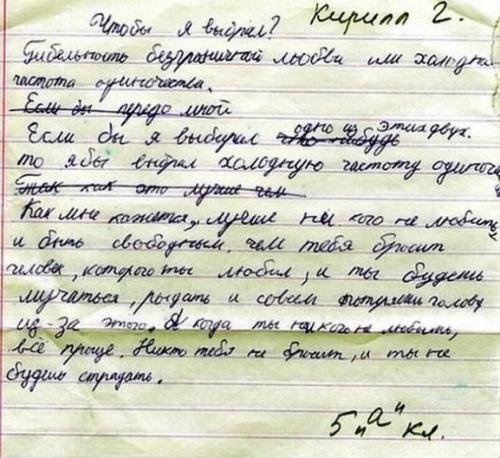 Чтобы я выбрал? Кирилл 2.
Гибельность безграничной любви или холодна
частота одиночества.
Если бы передо мной
Если бы я выбирал что-нибудь одно из этих двух.
то я бы выбрал холодную частоту одиноче
Так как это лучше чем
Как мне кажется, лучше ни кого не любить,
и быть свободным. чем тебя бросит
человек, которого ты любил, и ты будешь
мучаться, рыдать и совсем потеряешь голову
из-за этого. А когда ты ни кого не любишь,
всё проще. Никто тебя не бросит, и ты не
будешь страдать.
5 "а" кл.